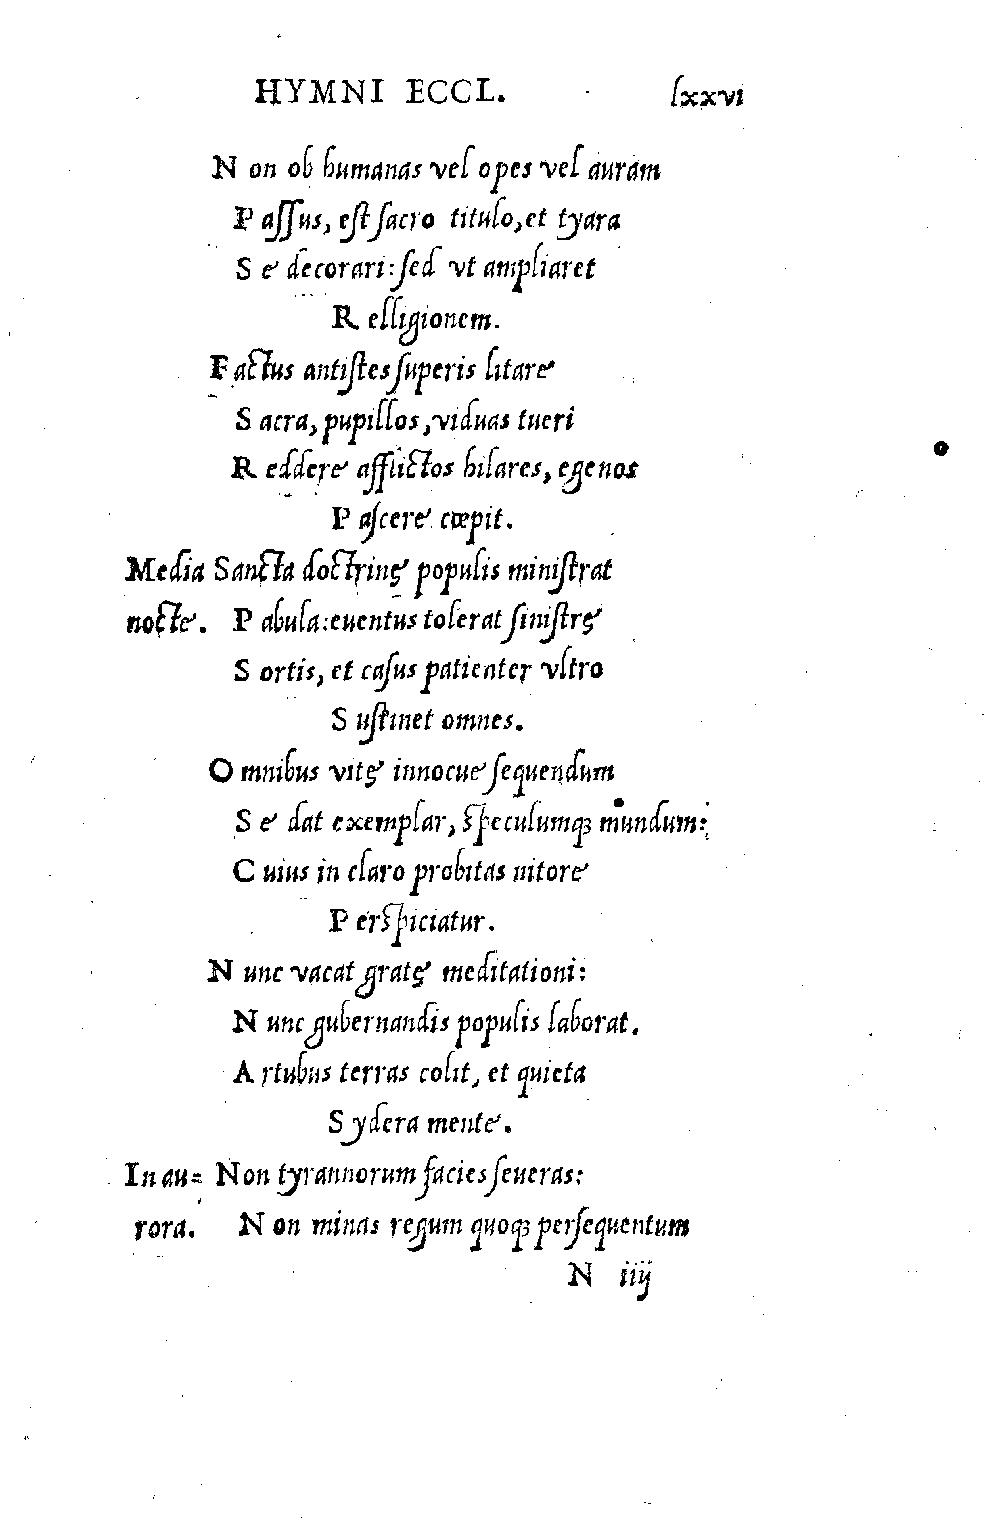 HYMNI ECCL. lxxvi
Non ob humanas vel opes vel auram
Paſſus, eſt ſacro titulo, et tyara
Se decorari: ſed vt ampliaret
Relligionem.
Factus antiſtes ſuperis litare
Sacra, pupillos, viduas tueri
Reddere afflictos hilares, egenos
Paſcere cœpit.
Media Sancta doctrinę populis miniſtrat
nocte. Pabula: euentus tolerat ſiniſtrę
Sortis, et caſus patienter vltro
Suſtinet omnes.
Omnibus vitę innocue ſequendum
Se dat exemplar, ſpeculumqꝫ mundum:
Cuius in claro probitas nitore
Perſpiciatur.
Nunc vacat gratę meditationi:
Nunc gubernandis populis laborat.
Artubus terras colit, et quieta
Sydera mente.
In au= Non tyrannorum facies ſeueras:
rora. Non minas regum quoqꝫ perſequentum
N iiij